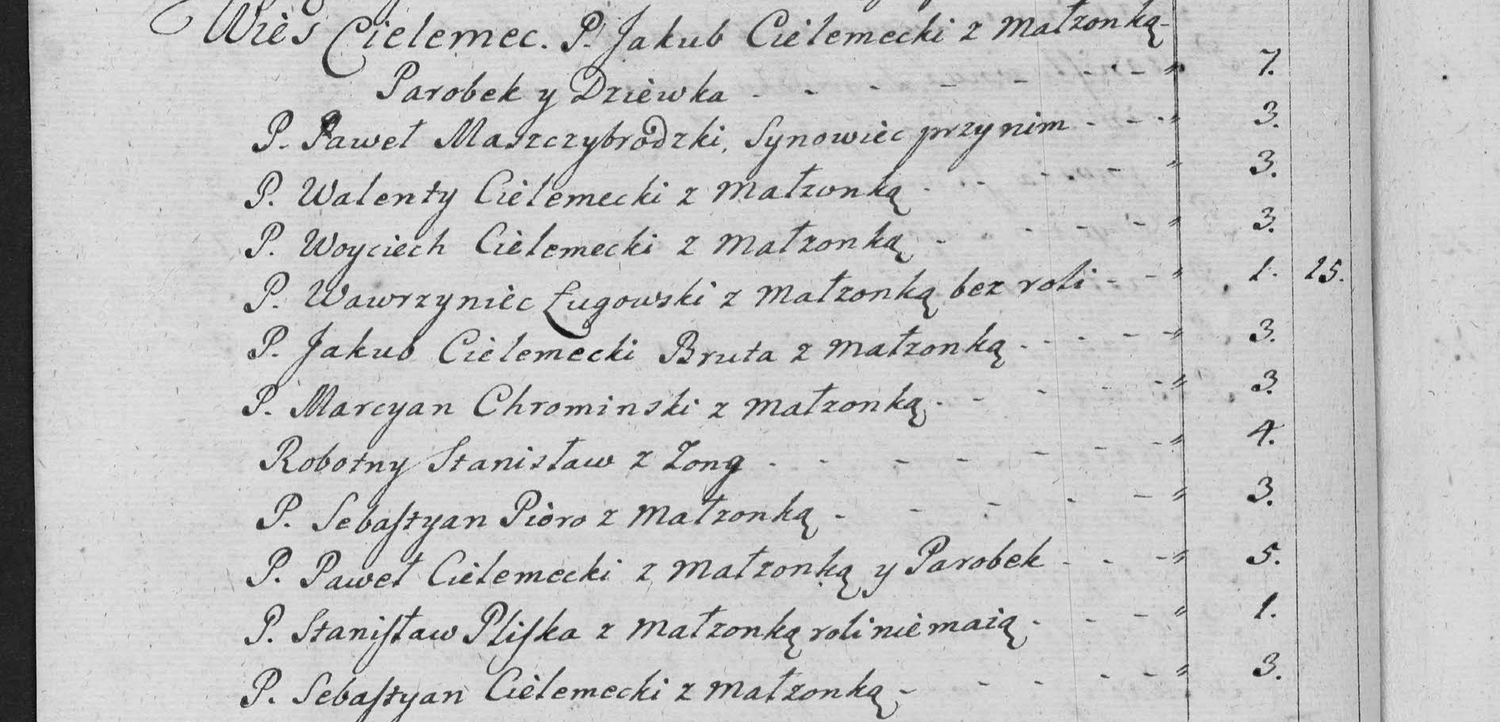 Wieś Cielemec. P. Jakub Cielemecki z Małzonką
Parobek y Dziewka - - - - - - " 7.
P. Paweł Maszczybrodzki, Synowiec przy nim - - - " 3.
P. Walenty Cielemecki z Małzonką - - - - - " 3.
P. Woyciech Cielemecki z Małzonką - - - - - " 3.
P. Wawrzyniec Ługowski z Małzonką bez roli - - " 1. 25.
P. Jakub Cielemecki Bruta z Małzonką - - - - " 3.
P. Marcyan Chrominski z Małzonką - - - - - " 3.
Robotny Stanisław z Zoną - - - - - - - " 4.
P. Sebastyan Pioro z Małzonką - - - - - " 3.
P. Paweł Cielemecki z Małzonką y Parobek - - - " 5.
P. Stanisław Pliska z Małzonką roli nie maią - - - " 1.
P. Sebastyan Cielemecki z Małzonką - - - - - " 3.